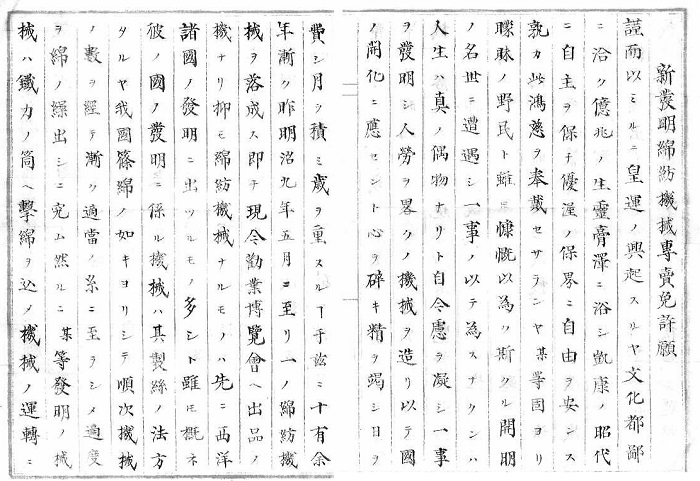 新發明綿紡機械專賣免許願
謹而以ミルニ皇運ノ興起スルヤ文化都鄙
ニ洽ク億兆ノ生靈膏澤ニ浴シ凱康ノ昭代
ニ自主ヲ保チ優渥ノ保畧ニ自由ヲ安ンス
孰カ此鴻慈ヲ奉戴セサランヤ某等固ヨリ
矇昧ノ野民ト雖モ慷慨以為ク斯クル開明
ノ名世ニ遭遇シ一事ノ以テ為スナクンハ
人生ハ真ノ偶物ナリト自今慮ヲ凝シ一事
ヲ發明シ人勞ヲ畧クノ機械ヲ造リ以テ國
ノ開化ニ應セント心ヲ碎キ精ヲ竭シ日ヲ
費シ月ヲ積ミ歳ヲ重スルヿ于玆ニ十有余
年漸ク昨明治九年五月ニ至リ一ノ綿紡機
械ヲ落成ス即チ現今勸業博覽會ヘ出品ノ
機ナリ抑モ綿紡機械ナルモノハ先ニ西洋
諸國ノ發明ニ出ツルモノ多シト雖モ概ネ
彼ノ國ノ發明ニ係ル機械ハ其製絲ノ法方
タルヤ我國篠綿ノ如キヨリシテ順次機械
ノ數ヲ經テ漸ク適當ノ糸ニ至ヲシメ過度
ヲ綿ノ繰出シニ究ム然ルニ某等發明ノ械
械ハ鐵力ノ筒ヘ擊綿ヲ込メ機械ノ運轉ニ